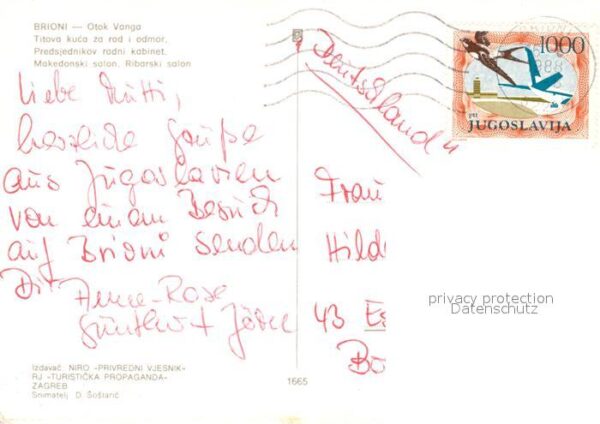 BRIONI — Otok Vanga
Titova kuća za rad i odmor,
Predsjednikov radni kabinet,
Makedonski salon, Ribarski salon
Liebe Mutti,
herzliche Grüße
aus Jugoslavien
von einem Besuch
auf Brioni senden
Dir Anne-Rose
Günther + Jörn
Izdavač: NIRO «PRIVREDNI VJESNIK»
RJ «TURISTIČKA PROPAGANDA»
ZAGREB
Snimatelj D. Šoštarić
1665
"Deutschland"
1000
ptt
JUGOSLAVIJA
Frau
Hild
43 Es
Bö
privacy protection
Datenschutz